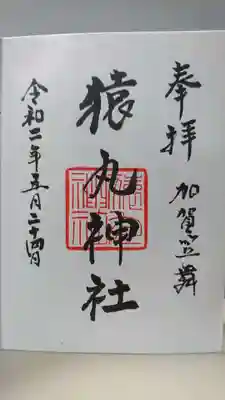 奉拝
加賀笠舞
猿丸神社
令和二年五月二十四日